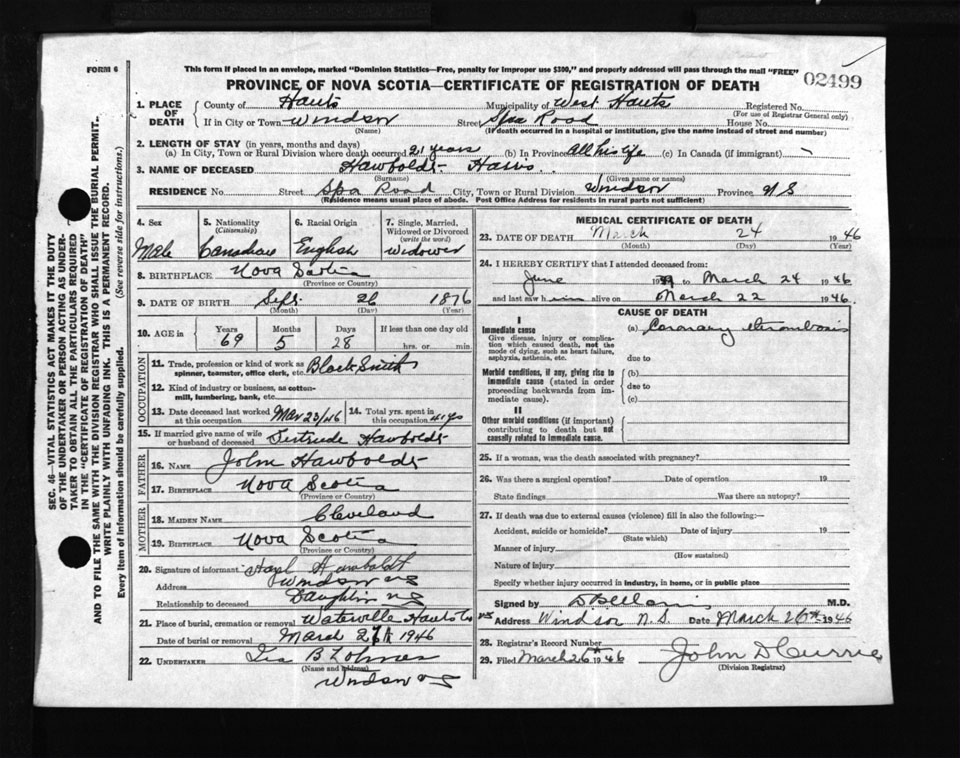 FORM 6
This form if placed in an envelope, marked "Dominion Statistics—Free, penalty for improper use $300," and properly addressed will pass through the mail "FREE"
02499
PROVINCE OF NOVA SCOTIA—CERTIFICATE OF REGISTRATION OF DEATH
1. PLACE OF DEATH
County of Hants Municipality of West Hants Registered No.
(For use of Registrar General only)
If in City or Town Windsor Street Spa Road House No.
(Name) (If death occurred in a hospital or institution, give the name instead of street and number)
2. LENGTH OF STAY (in years, months and days)
(a) In City, Town or Rural Division where death occurred 21 years (b) In Province All his life (c) In Canada (if immigrant)
3. NAME OF DECEASED Hawboldt
(Surname) (Given name or names)
RESIDENCE No. Street Spa Road City, Town or Rural Division Windsor Province N S
(Residence means usual place of abode. Post Office Address for residents in rural parts not sufficient)
4. Sex
Male
5. Nationality (Citizenship)
Canadian
6. Racial Origin
English
7. Single, Married, Widowed or Divorced (write the word)
Widower
8. BIRTHPLACE Nova Scotia
(Province or Country)
9. DATE OF BIRTH Sept. 26 1876
(Month) (Day) (Year)
10. AGE in Years Months Days If less than one day old
69 5 28 hrs. or min.
OCCUPATION
11. Trade, profession or kind of work as spinner, teamster, office clerk, etc. Black Smith
12. Kind of industry or business, as cotton-mill, lumbering, bank, etc.
13. Date deceased last worked at this occupation Mar 23/46
14. Total yrs. spent in this occupation 41 yrs
15. If married give name of wife or husband of deceased Gertrude Hawboldt
FATHER
16. NAME John Hawboldt
17. BIRTHPLACE Nova Scotia
(Province or Country)
MOTHER
18. MAIDEN NAME Cleveland
19. BIRTHPLACE Nova Scotia
(Province or Country)
20. Signature of informant Hawboldt
Address Windsor NS
Relationship to deceased Daughter
21. Place of burial, cremation or removal Waterville Hants Co
Date of burial or removal March 1946
22. UNDERTAKER
(Name and address)
Windsor NS
MEDICAL CERTIFICATE OF DEATH
23. DATE OF DEATH March 24 1946
(Month) (Day) (Year)
24. I HEREBY CERTIFY that I attended deceased from:
June 19 to March 24 1946
and last saw him alive on March 22 1946.
CAUSE OF DEATH
I
Immediate cause
Give disease, injury or complication which caused death, not the mode of dying, such as heart failure, asphyxia, asthenia, etc.
(a) Coronary thrombosis
due to
Morbid conditions, if any, giving rise to immediate cause (stated in order proceeding backwards from immediate cause).
(b)
due to
(c)
II
Other morbid conditions (if important) contributing to death but not causally related to immediate cause.
25. If a woman, was the death associated with pregnancy?
26. Was there a surgical operation? Date of operation 19
State findings Was there an autopsy?
27. If death was due to external causes (violence) fill in also the following:—
Accident, suicide or homicide? Date of injury 19
(State which)
Manner of injury
(How sustained)
Nature of injury
Specify whether injury occurred in industry, in home, or in public place
Signed by M.D.
Address Windsor N.S. Date March 26th 1946
28. Registrar's Record Number
29. Filed March 26th 1946 John D Currie
(Division Registrar)
SEC. 46—VITAL STATISTICS ACT MAKES IT THE DUTY
OF THE UNDERTAKER OR PERSON ACTING AS UNDER-
TAKER TO OBTAIN ALL THE PARTICULARS REQUIRED
IN THE "CERTIFICATE OF REGISTRATION OF DEATH" AND
TO FILE THE SAME WITH THE DIVISION REGISTRAR WHO SHALL ISSUE THE BURIAL PERMIT.
WRITE PLAINLY WITH UNFADING INK. THIS IS A PERMANENT RECORD.
Every item of information should be carefully supplied. (See reverse side for instructions.)